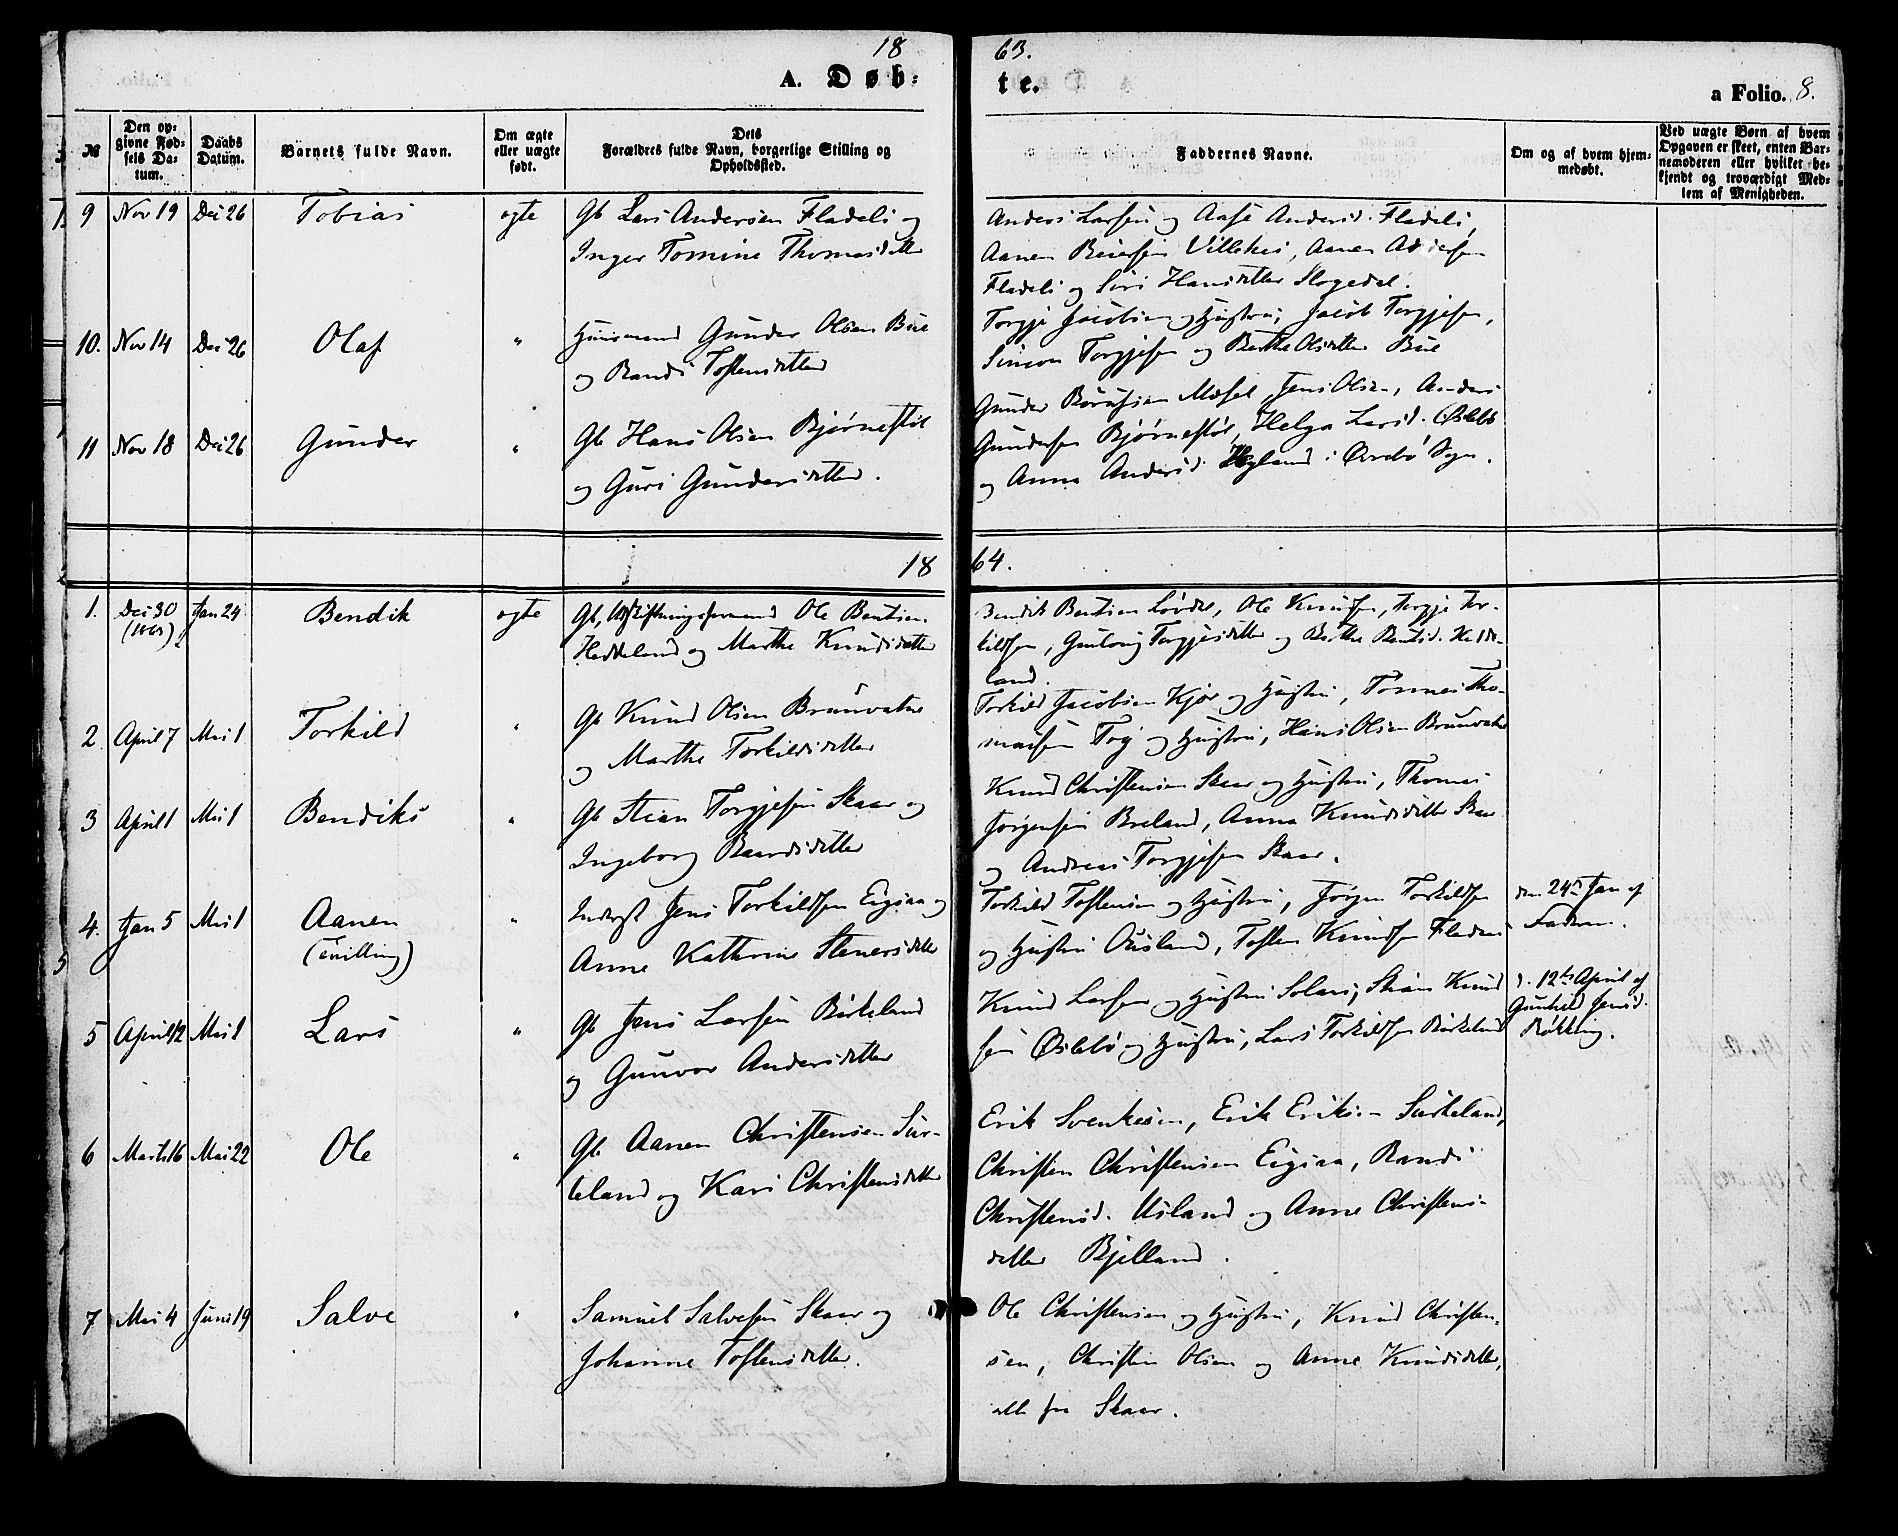 18 63.
A. Døb- te. a Folio. 8.
№
Den opgivne Fødsels Datum.
Daabs Datum.
Barnets fulde Navn.
Om ægte eller uægte født.
Dets Forældres fulde Navn, borgerlige Stilling og Opholdssted.
Faddernes Navne.
Om og af hvem hjemmedøbt.
Ved uægte Børn af hvem Opgaven er skeet, enten Barnemoderen eller hvilket bekjendt og troværdigt Medlem af Menigheden.
9 Nov 19 Dec 26 Tobias ægte Gb Lars Andersen Fladeli og
Inger Tomine Thomasdatter
Anders Larsen og Aase Andersd. Fladeli,
Aanen Aanen Andersen
Fladeli og Siri Hansdatter Slogedal.
10. Nov 14 Dec 26 Olaf " Huusmand Gunder Olsen Bue
og Randi Tostensdatter
Torgje Jacobsen og Hustru, Jacob Torgjesen,
Simon Torgjesen og Berthe Olsdatter Bue
11 Nov 18 Dec 26 Gunder " Gb Hans Olsen Bjørnestøl
og Guri Gundersdatter.
Gunder Mosel, Jens Olsen, Anders
Gundersen Bjørnestøl, Helga Larsd. Øslebø
og Anna Andersd. Høyland i Øvrebø Sogn.
18 64.
1. Dec 30 (1863) Jan 24 Bendik ægte Gb, Ole Bentsen
Heddeland og Marthe Knudsdatter
Bendik Bentsen Løvdal, Ole Knudsen, Torgje Tor-
kildsen, Gunlaug Torgjusdatter og Berthe Bentsd. Hedde-
land.
2 April 7 Mai 1 Torkild " Gb Knud Olsen Bruunvatne
og Marthe Torkildsdatter
Torkild Jacobsen Kjær og Hustru, Tønnes Tho-
massen og Hustru, Hans Olsen Bruunvatne
3 April 1 Mai 1 Bendiks " Gb Stian Torgjesen Skaar og
Ingeborg Baardsdatter
Knud Christensen Skaar og Hustru, Thomas
Jørgensen Breland, Anna Knudsdatter Skaar
og Andreas Torgjesen Skaar.
4. Jan 5 Mai 1 Aanen
(Tvilling) " Inderst Jens Torkildsen Eigsaa og
Anne Kathrine Stenersdatter
Torkild Tostensen og Hustru, Jørgen Torkildsen
og Hustru Ousland, Tosten Knudsen
den 24de Jan af
Faderen.
5 April 12 Mai 1 Lars " Gb Jens Larsen Birkeland
og Gunvor Andersdatter
Knud Larsen og Hustru Solaas, Stian Knud
sen Øslebø og Hustru, Lars Torkildsen Birkeland
d. 12te April af
Gunhild Jensd.
6 Marts 16 Mai 22 Ole " Gb Aanen Christensen Sur-
teland og Kari Christensdatter
Erik Svenkesen, Erik Eriksen Surteland,
Christen Christensen Eigsaa, Randi
Christensd. Usland og Anne Christens-
datter Bjelland.
7 Mai 4 Juni 19 Salve " Samuel Salvesen Skaar og
Johanne Tostensdatter.
Ole Christensen og Hustru, Knud Christen-
sen, Christen Olsen og Anne Knudsdatter,
alle fra Skaar.